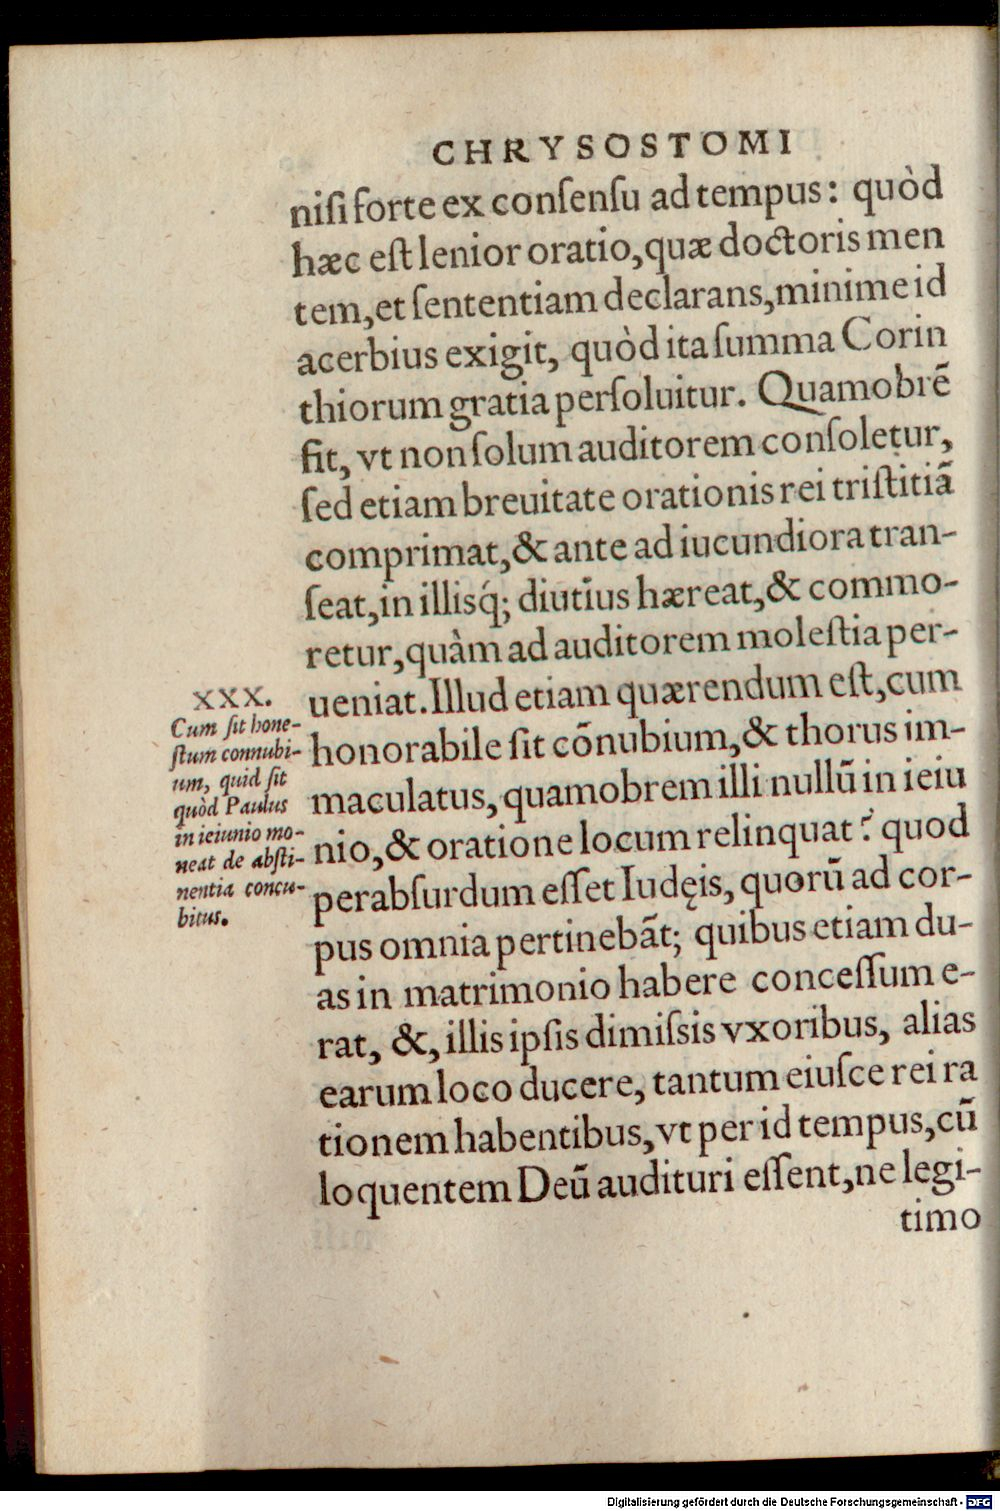 CHRYSOSTOMI
niſi forte ex conſenſu ad tempus: quòd
hæc eſt lenior oratio, quæ doctoris men
tem, et ſententiam declarans, minime id
acerbius exigit, quòd ita ſumma Corin
thiorum gratia perſoluitur. Quamobrē
fit, vt non ſolum auditorem conſoletur,
ſed etiam breuitate orationis rei triſtitiā
comprimat, & ante ad iucundiora tran-
ſeat, in illisq́; diutius hæreat, & commo-
retur, quàm ad auditorem moleſtia per-
ueniat. Illud etiam quærendum eſt, cum
honorabile ſit cōnubium, & thorus im-
maculatus, quamobrem illi nullū in ieiu
nio, & oratione locum relinquat? quod
perabſurdum eſſet Iudęis, quorū ad cor-
pus omnia pertinebāt; quibus etiam du-
as in matrimonio habere conceſſum e-
rat, &, illis ipſis dimiſsis vxoribus, alias
earum loco ducere, tantum eiuſce rei ra
tionem habentibus, vt per id tempus, cū
loquentem Deū audituri eſſent, ne legi-
timo
XXX.
Cum ſit hone-
ſtum connubi-
um, quid ſit
quòd Paulus
in ieiunio mo-
neat de abſti-
nentia concu-
bitus.
Digitalisierung gefördert durch die Deutsche Forschungsgemeinschaft - DFG